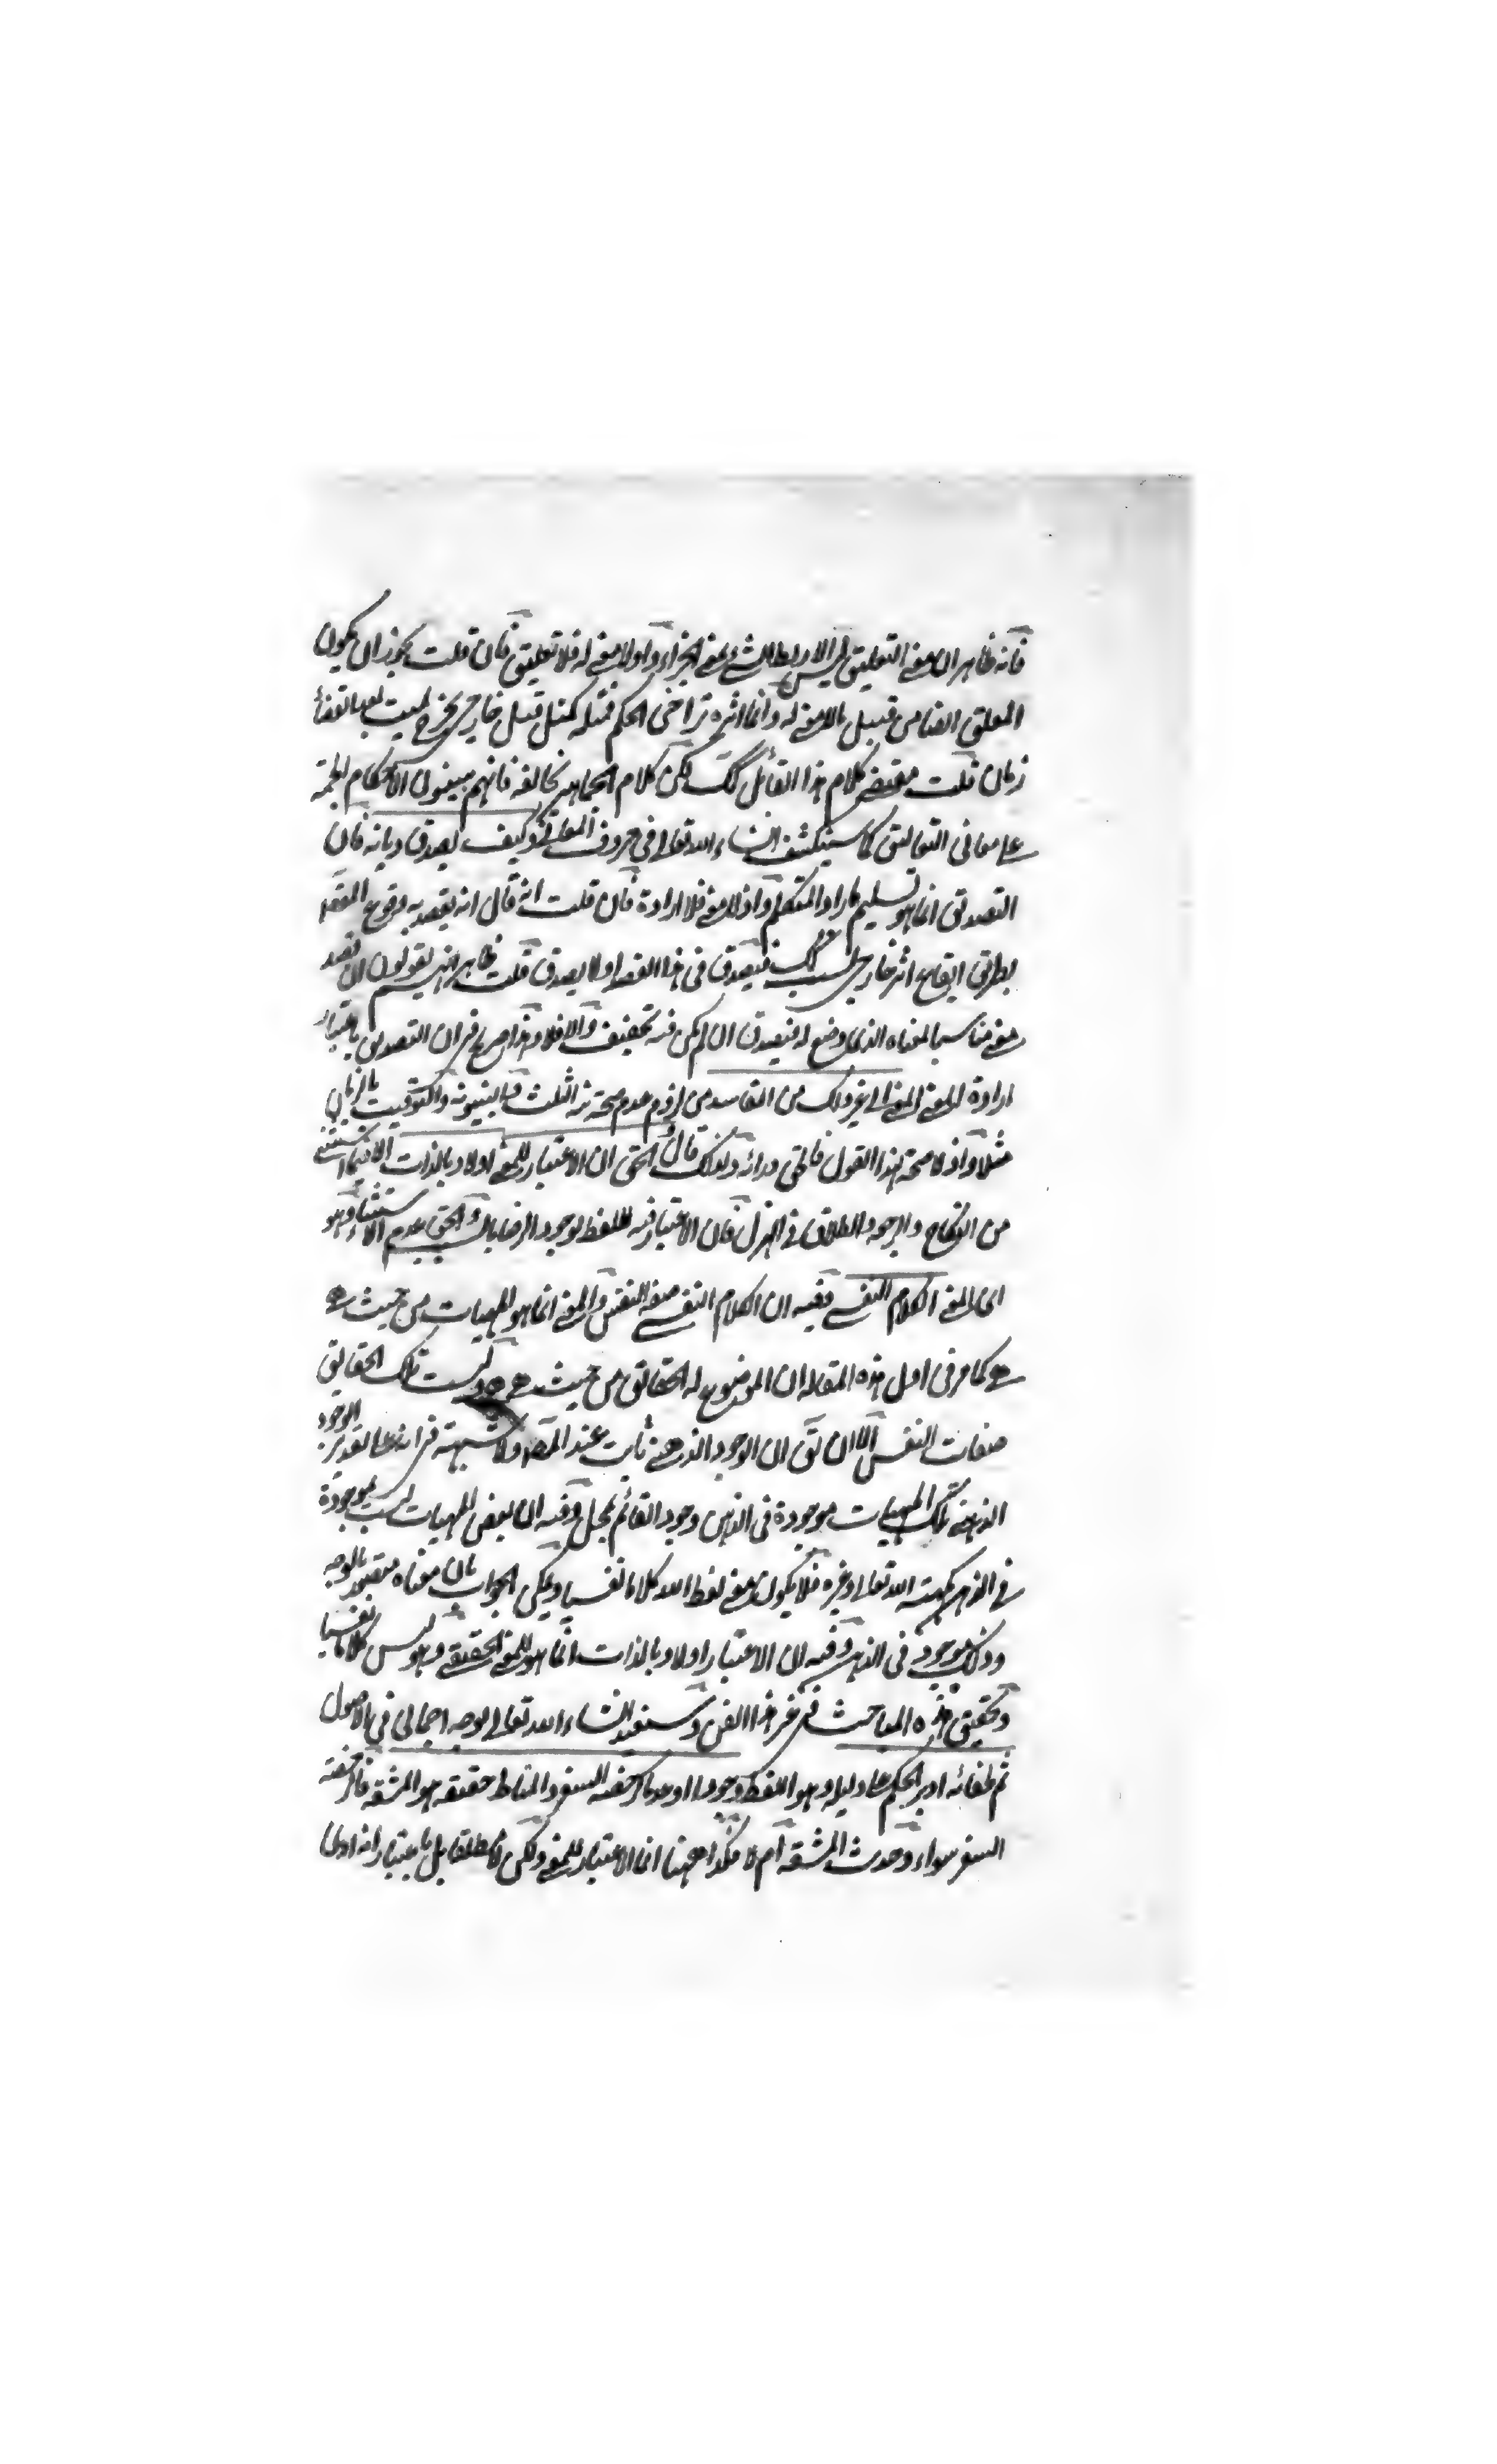 فانه ظاهر ان معنى التعليق ليس الا ربط الشيء بمعنى الجزاء واذ لا معنى له فلا تعليق فان قلت يجوز ان يكون
المعلق ايضا من قبيل ما لا معنى له وانما اثره تراخى الحكم فمثله كمثل قيل خارجى
زمان قلت مقتضى كلام هذا القائل كك لكن كلام الجماهير يخالفه فانهم يبنون الاحكام
على معانى التعاليق كما سينكشف انشاء الله تعالى فى حروف المعانى وكيف يصدق ديانة فان
التصديق انما هو تسليم ما اراد المتكلم واذ لا معنى فلا ارادة فان قلت انه قال انه يقصد به وقوع
بطريق ايقاع اثر خارجى فيصدق فى هذا القصد او لا يصدق قلت ظاهر انهم يقولون ان قصد
معنى مناسبا لمعناه الذى وضع له فيصدق ان لم يكن فيه تخفيف والا فلا وهذا صريح فى ان التصديق باعتبار
ارادة المعنى الى غير ذلك من المفاسد من لزوم عدم صحة نية الثلث فى البينونة والتوقيت بالزمان
مثلا واذ لا صحة لهذا القول فالحق وراءه ولذلك قال الحق ان الاعتبار للمعنى اولا وبالذات الا فيما استثنى
من النكاح والرجعة والطلاق فى الهزل فان الاعتبار فيه للفظ لوجود الرضا بالسبب والحق عدم الاستثناء وهو
اى المعنى الكلام النفسى ففيه ان الكلام النفسى صفة النفس والمعنى انما هو المهيات من حيث هى
هى كما مر فى اول هذه المقالة ان الموضوع له الحقائق من حيث هى هى وليست تلك الحقايق
صفات النفس الا ان يق ان الوجود الذهنى ثابت عند المصـ ولا شبهة فى انه على تقدير الوجود
الذهنى تلك المهيات موجودة فى الذهن وجود القائم بمحل وفيه ان بعض المهيات ليست بموجودة
فى الذهن ككنه الله تعالى وغيره فلا يكون معنى لفظ الله كلاما نفسيا ويمكن الجواب بان معناه متصور بالوجه
وذلك موجود فى الذهن وفيه ان الاعتبار اولا وبالذات انما هو للمعنى الحقيقى وهو ليس كلاما نفسيا
وتحقيق هذه المباحث فى غير هذا الفن وسنفيد انشاء الله تعالى بوجه اجمالى فى الاصول
ثم لخفائه ادير الحكم على دليله وهو اللفظ وجودا او عدما كرخصة السفر والمناط حقيقة هو المشقة فالرخصة
السفر سواء وجدت المشقة ام لا فكذا ههنا انما الاعتبار للمعنى ولكن لا مطلقا بل باعتبار انه اولى